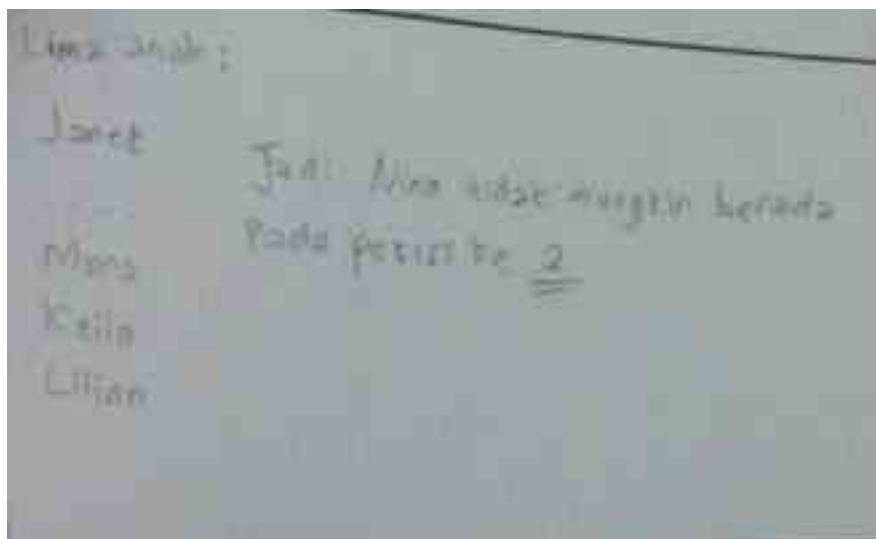 Lima anak :
Janet
Mona
Keila
Lilian
Jadi Nina tidak mungkin berada
Pada posisi ke 2